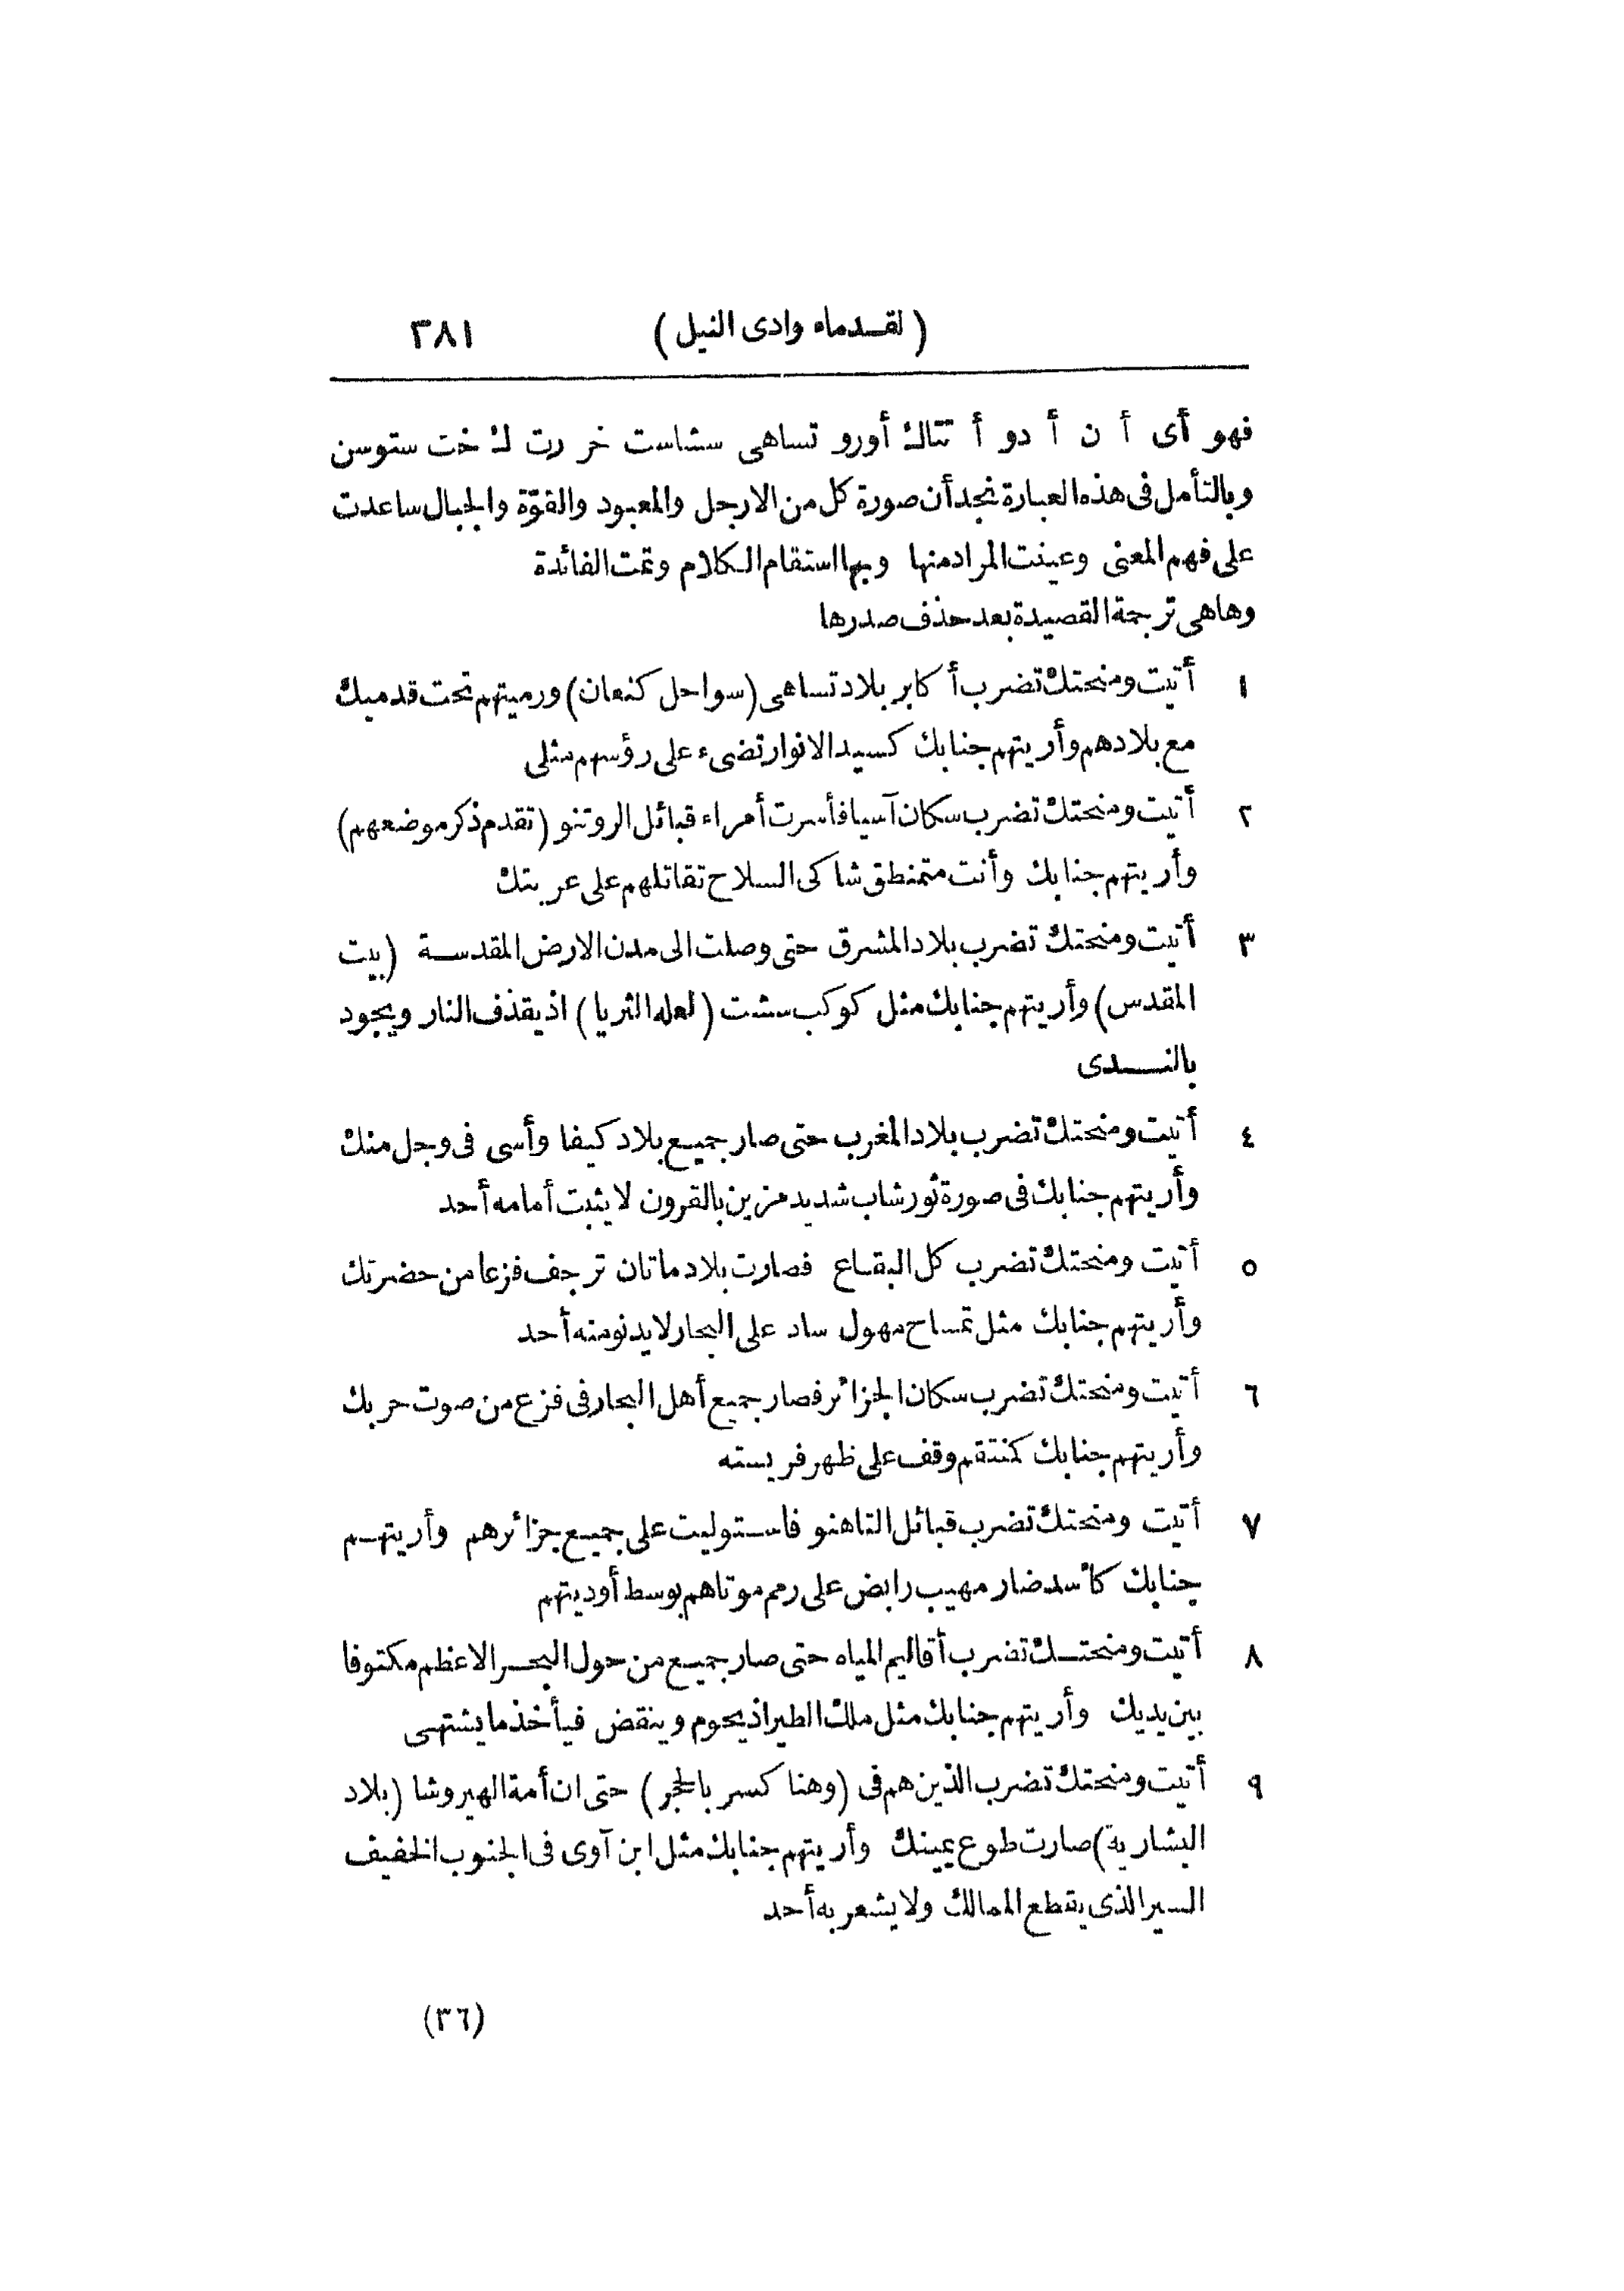 (لقدماء وادى النيل) ٣٨١
فهو أى أ ن أ دو أ تتاك أورو تساهى سشاست خر رت ك خت ستوسن
وبالتأمل فى هذه العبارة نجد أن صورة كل من الارجل والمعبود والقوّة والجبال ساعدت
على فهم المعنى وعينت المراد منها وبها استقام الكلام وتمت الفائدة
وهاهى ترجمة القصيدة بعد حذف صدرها
١ أتيت ومنحتك تضرب أكابر بلاد تساهى (سواحل كنعان) ورميتهم تحت قدميك
مع بلادهم وأريتهم جنابك كسيد الانوار تضىء على رؤسهم مثلى
٢ أتيت ومنحتك تضرب سكان آسيا فأسرت أمراء قبائل الروتنو (تقدم ذكر موضعهم)
وأريتهم جنابك وأنت متمنطق شاكى السلاح تقاتلهم على عربتك
٣ أتيت ومنحتك تضرب بلاد المشرق حتى وصلت الى مدن الارض المقدسة (بيت
المقدس) وأريتهم جنابك مثل كوكب سشت (لعله الثريا) اذ يقذف النار ويجود
بالندى
٤ أتيت ومنحتك تضرب بلاد المغرب حتى صار جميع بلاد كيفا وأسى فى وجل منك
وأريتهم جنابك فى صورة ثور شاب شديد مزين بالقرون لا يثبت أمامه أحد
٥ أتيت ومنحتك تضرب كل البقاع فصارت بلاد ماتان ترجف فزعا من حضرتك
وأريتهم جنابك مثل تمساح مهول ساد على البحار لا يدنو منه أحد
٦ أتيت ومنحتك تضرب سكان الجزائر فصار جميع أهل البحار فى فزع من صوت حربك
وأريتهم جنابك كمنتقم وقف على ظهر فريسته
٧ أتيت ومنحتك تضرب قبائل التاهنو فاستوليت على جميع جزائرهم وأريتهم
جنابك كأسد ضار مهيب رابض على رمم موتاهم بوسط أوديتهم
٨ أتيت ومنحتك تضرب أقاليم المياه حتى صار جميع من حول البحر الاعظم مكتوفا
بين يديك وأريتهم جنابك مثل ملك الطير اذ يحوم وينقض فيأخذ ما يشتهى
٩ أتيت ومنحتك تضرب الذين هم فى (وهنا كسر بالحجر) حتى ان أمة الهيروشا (بلاد
البشارية) صارت طوع يمينك وأريتهم جنابك مثل ابن آوى فى الجنوب الخفيف
السير الذى يقطع الممالك ولا يشعر به أحد
(٣٦)